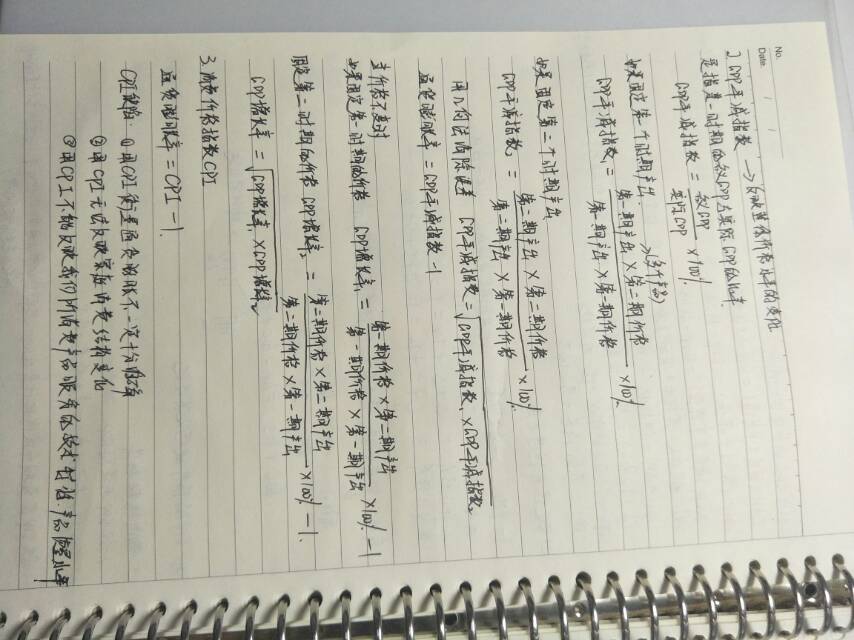 No.
Date
2. GDP平减指数 → 反映整体价格水平的变化
是指某一时期名义GDP与实际GDP的比率
GDP平减指数 = 名义GDP / 实际GDP × 100%
如果固定第一个时期产出 (多个产品)
GDP平减指数₁ = 第一期产出 × 第二期价格 / 第一期产出 × 第一期价格 × 100%
如果固定第二个时期产出
GDP平减指数₂ = 第二期产出 × 第二期价格 / 第二期产出 × 第一期价格 × 100%
用几何法消除误差 GDP平减指数 = √GDP平减指数₁ × GDP平减指数₂
通货膨胀率 = GDP平减指数 - 1
当价格不变时
如果固定第一时期的价格 GDP增长率₁ = 第一期价格 × 第二期产出 / 第一期价格 × 第一期产出 × 100% - 1
固定第二时期的价格 GDP增长率₂ = 第二期价格 × 第二期产出 / 第二期价格 × 第一期产出 × 100% - 1
GDP增长率 = √GDP增长率₁ × GDP增长率₂
3. 消费价格指数CPI
通货膨胀率 = CPI - 1
CPI缺陷: ①用CPI衡量通货膨胀不一定十分准确
②用CPI无法反映家庭消费结构变化
③用CPI不能反映我们所消费产品服务的技术 产品质量水平